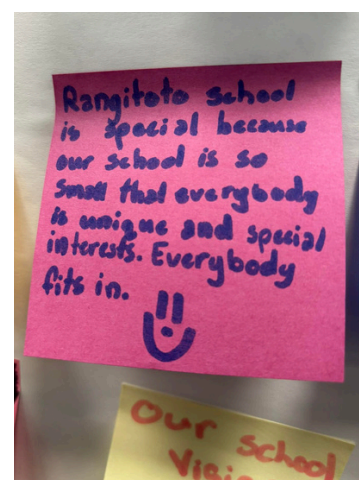 Rangitoto School
is special because
our school is so
small that everybody
is unique and special
interests. Everybody
fits in.
Our School